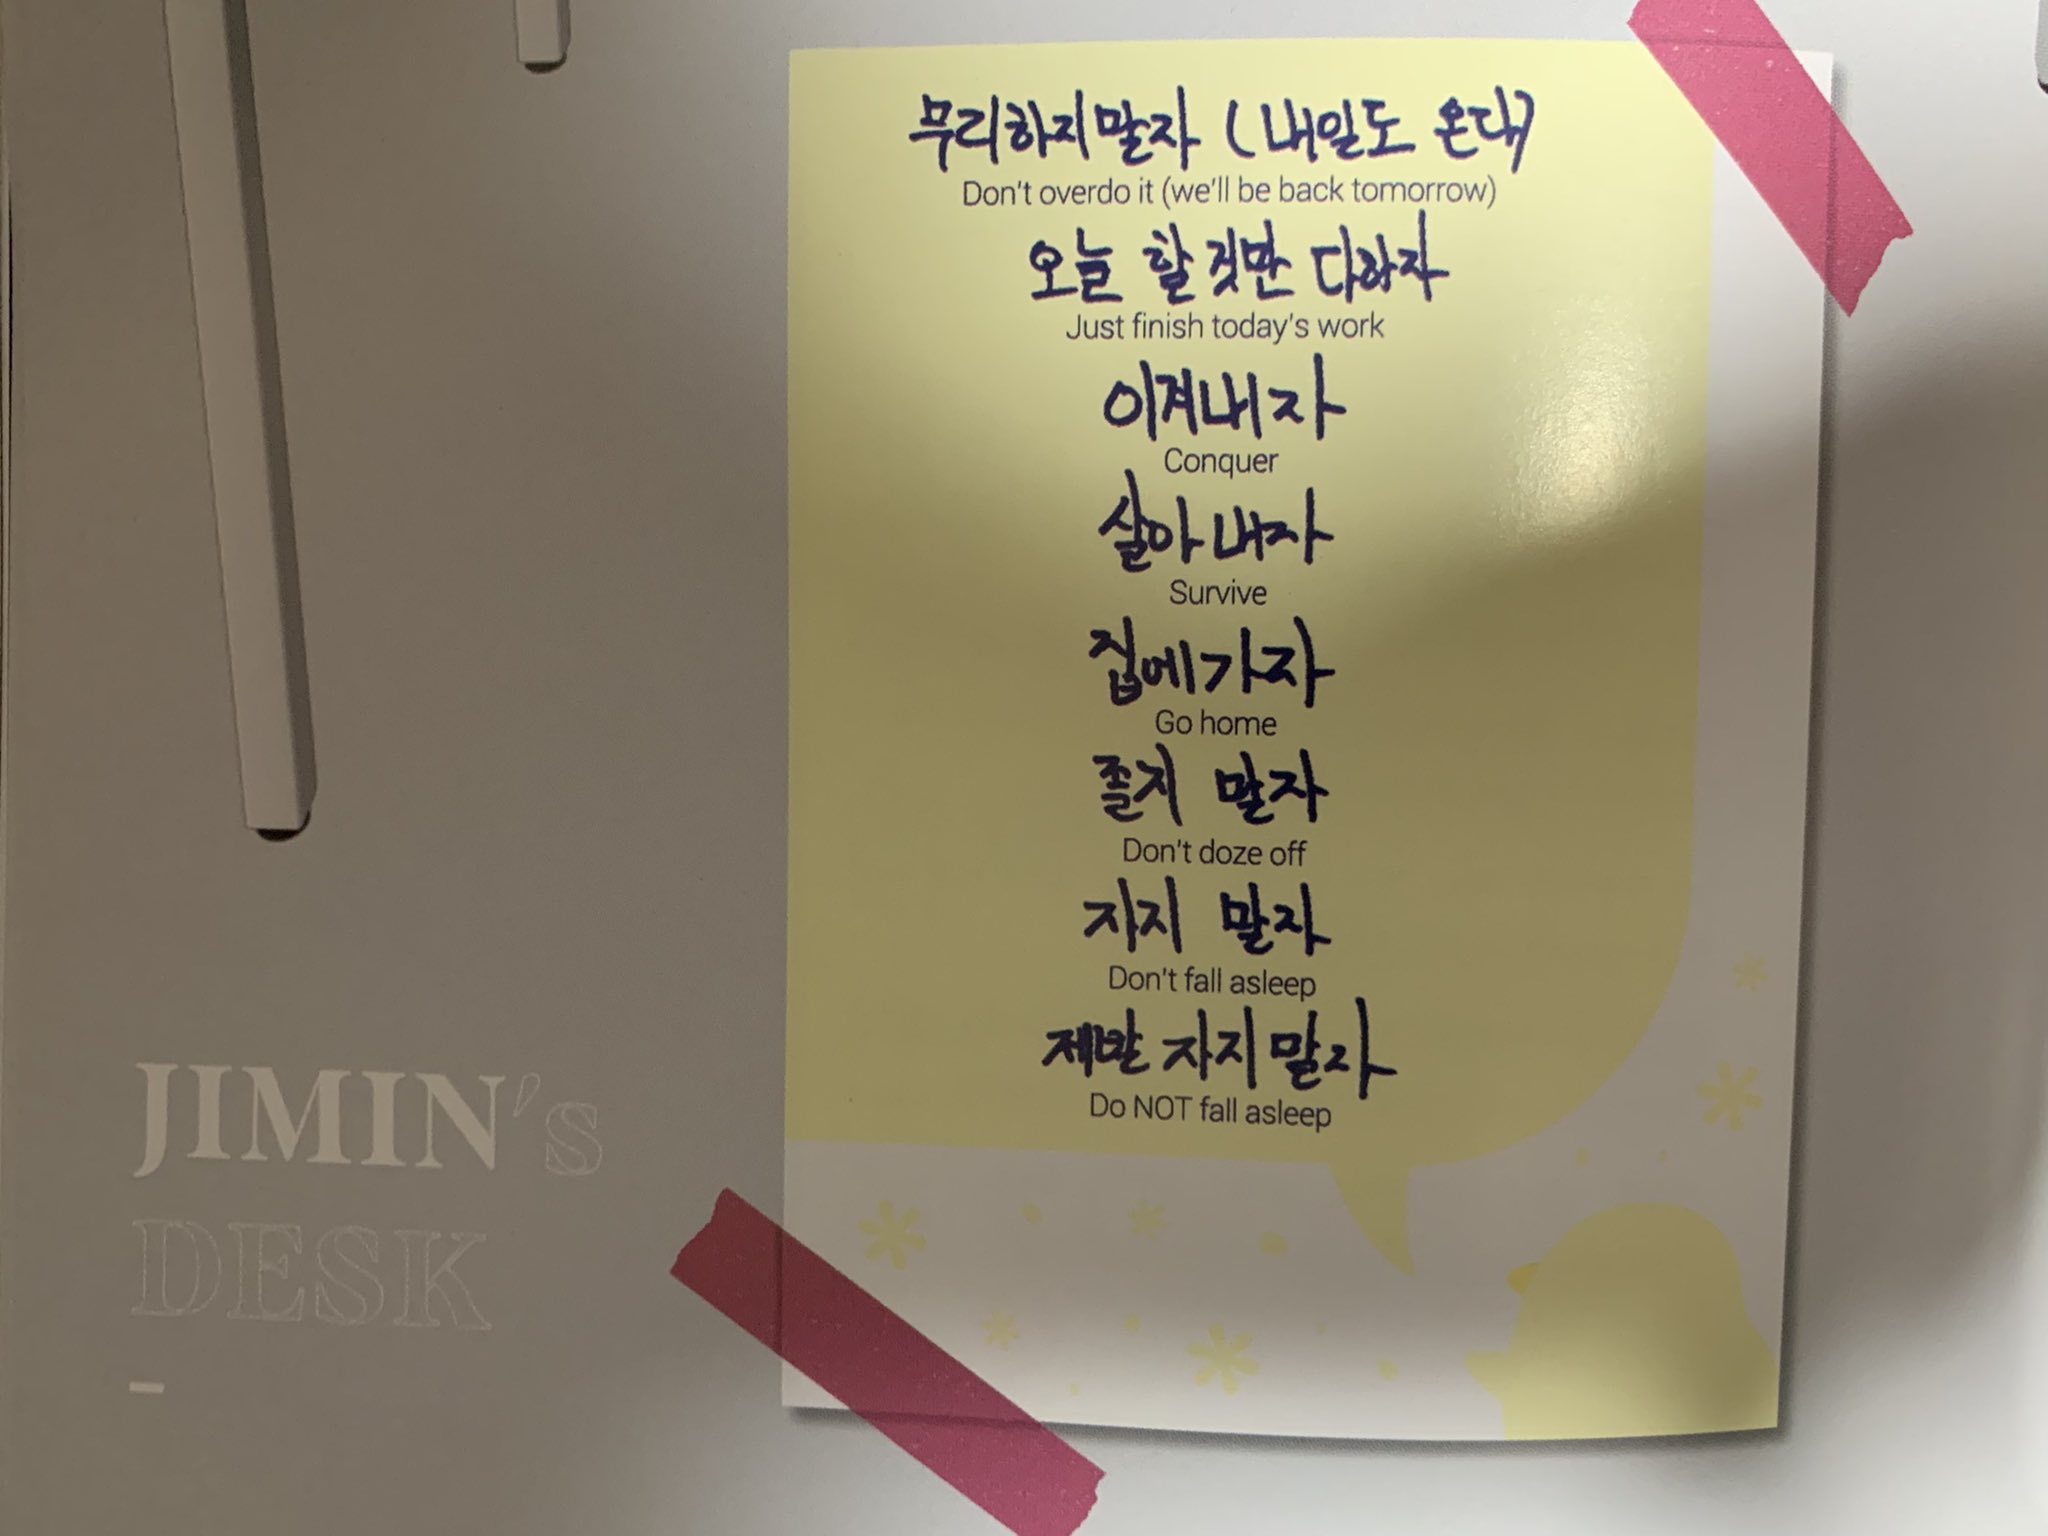 무리하지말자 (내일도 온대)
Don't overdo it (we'll be back tomorrow)
오늘 할것만 다하자
Just finish today's work
이겨내자
Conquer
살아내자
Survive
집에가자
Go home
졸지 말자
Don't doze off
자지 말자
Don't fall asleep
제발 자지말자
Do NOT fall asleep
JIMIN's
DESK